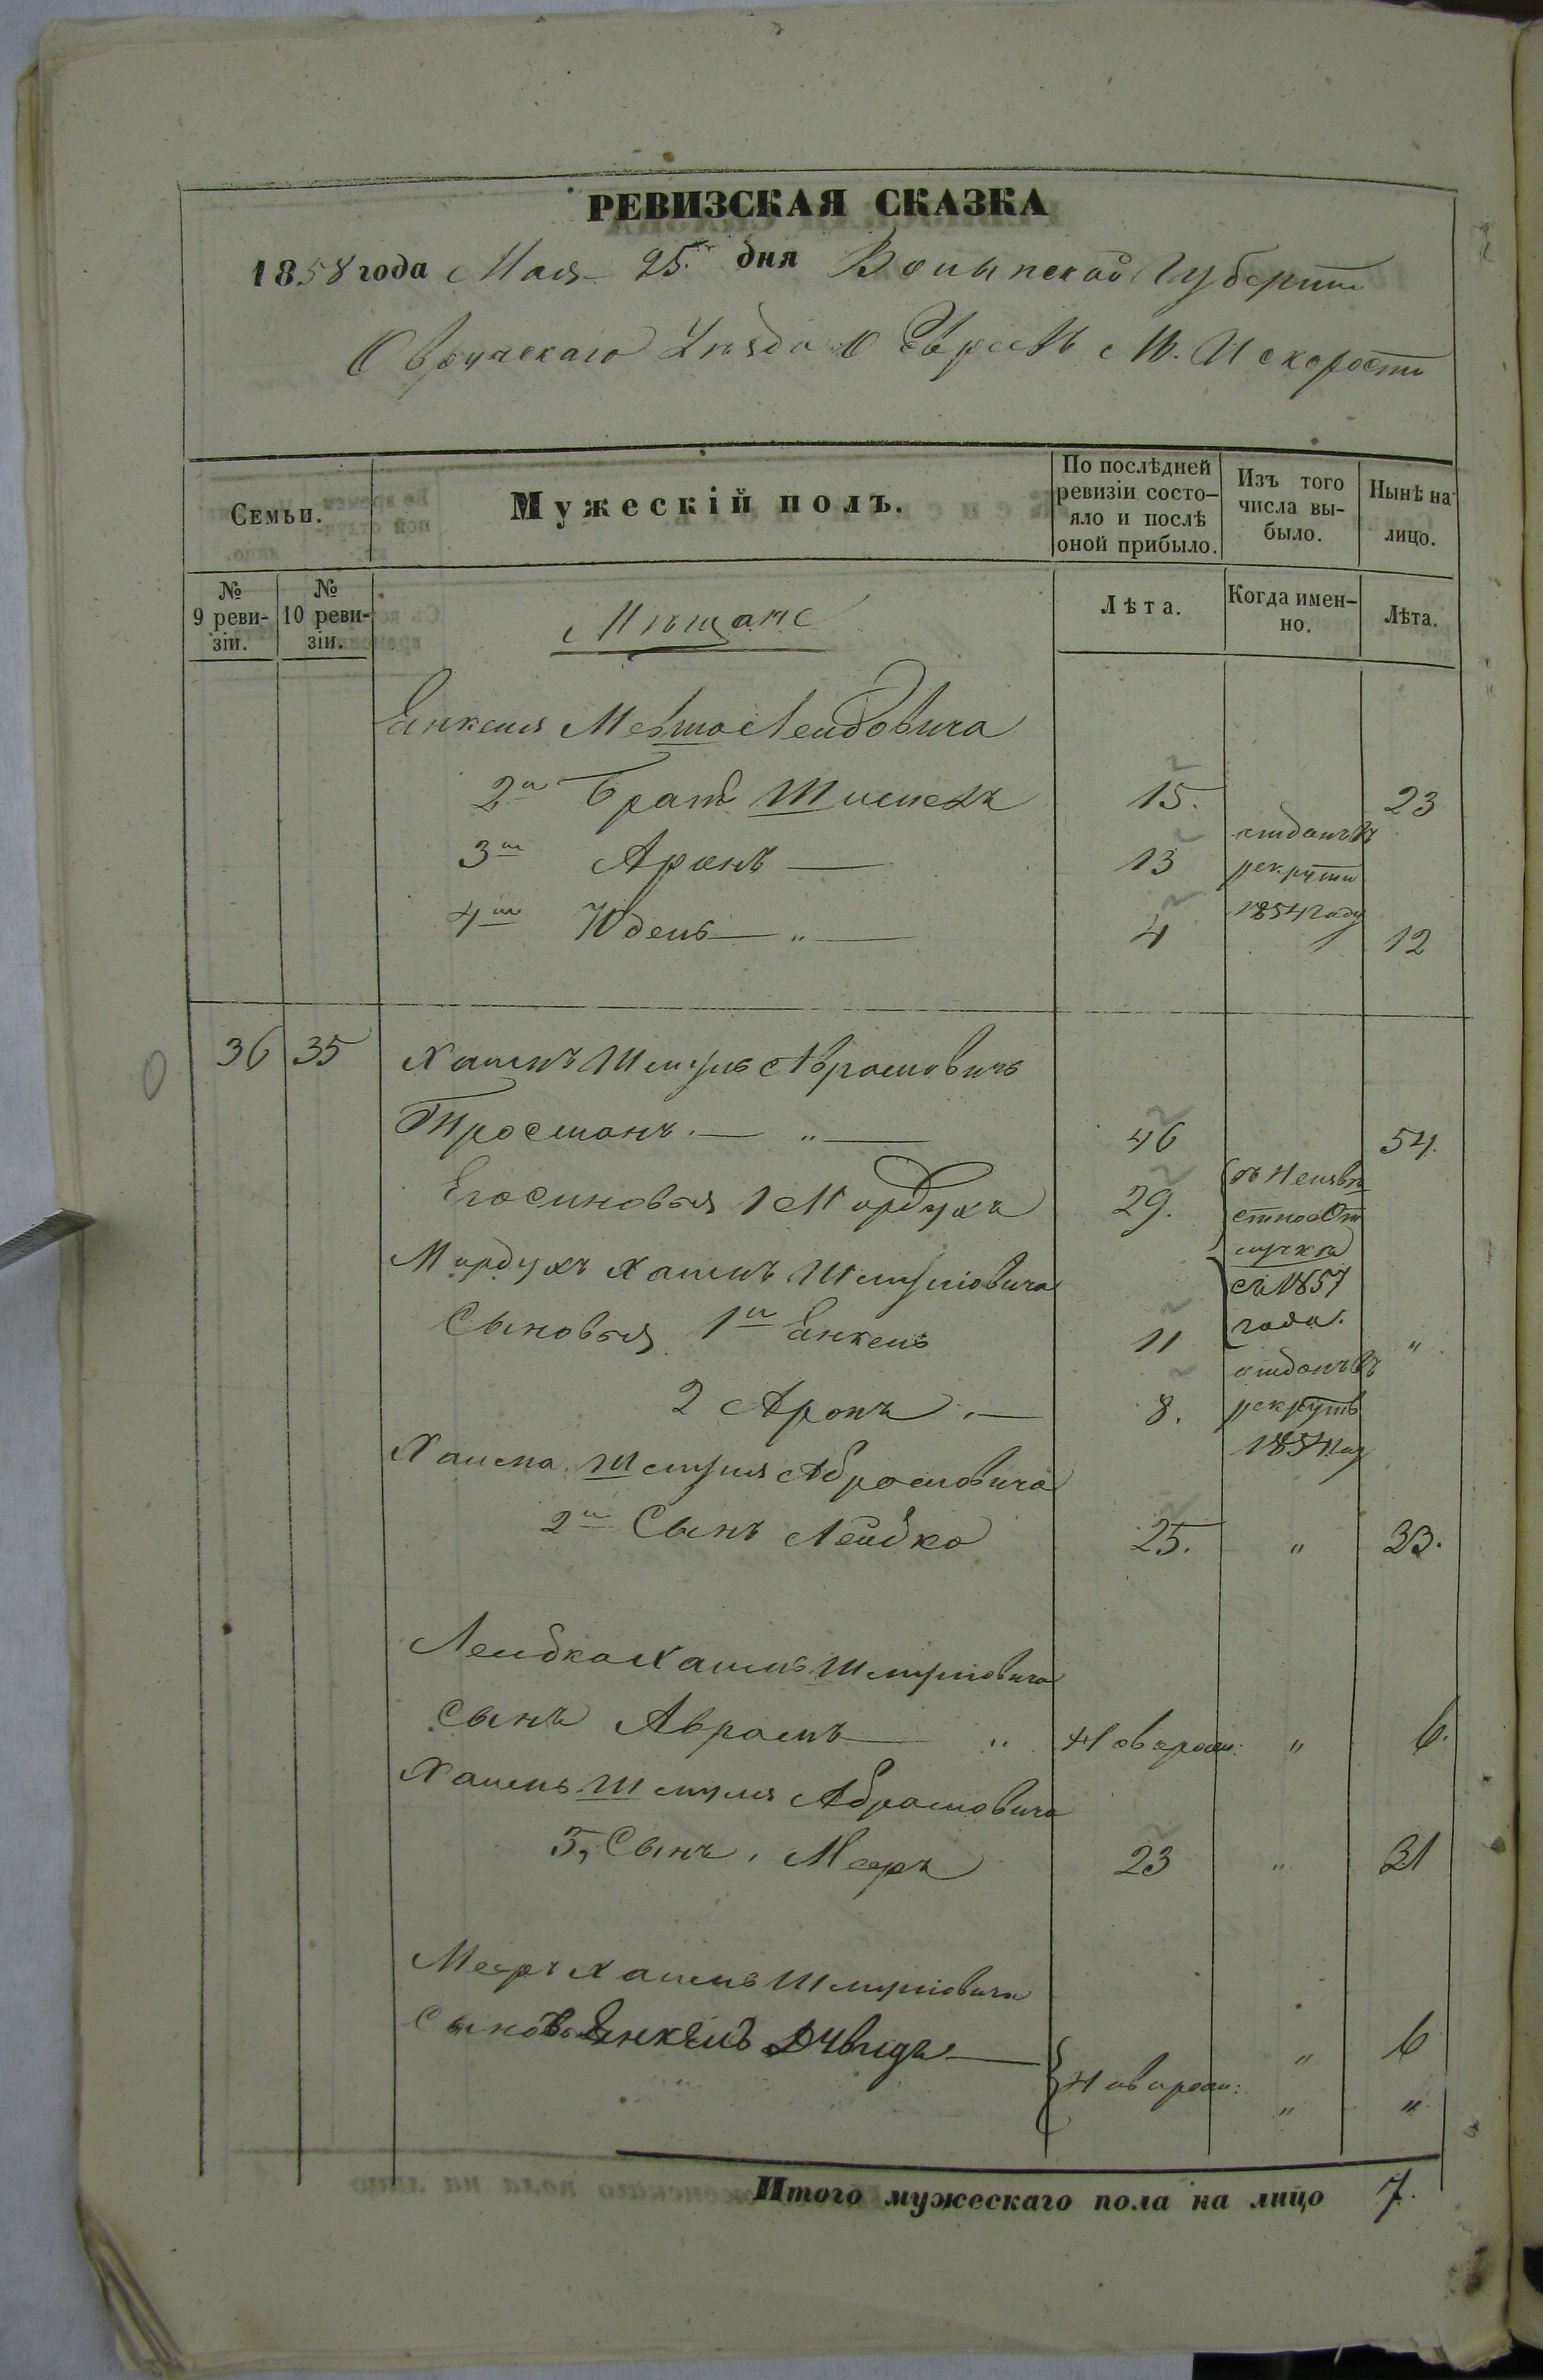 РЕВИЗСКАЯ СКАЗКА
1858 года Мая 25 дня Волынской Губерніи
Овручскаго Уѣзда О Евреяхъ М. Искорости
Семьи.
Мужескій полъ.
По послѣдней ревизіи состо-яло и послѣ оной прибыло.
Изъ того числа вы-было.
Нынѣ на лицо.
№ 9 реви-зіи.
№ 10 реви-зіи.
Мѣщане
Лѣта.
Когда имен-но.
Лѣта.
Янкеля Лейбовича
2й Братъ 15. 23
3й Аронъ 13 отданъ въ рекруты 1854 году
4й Юдель — " — 4 12
36 35 Хаимъ Шмуль Аврамовичъ
Тросманъ. — " — 46 54.
Его сыновья 1 Мордухъ 29. въ Неизвѣстной Отлучкѣ съ 1857 года.
Мордухъ Хаимъ Шмулiовича
Сыновья 1й Янкель 11 "
2 Аронъ — 8. отданъ въ рекруты 1854 году
Хаима Шмуля Абрамовича
2й Сынъ Лейбко 25. " 33.
Лейбка Хаимъ Шмулiовича
сынъ Аврамъ " Новорож: " 6.
Хаимъ Шмуля Абрамовича
3, Сынъ, Меръ 23 " 31
Меръ Хаимъ Шмулiовича
Сыновья Янкель Давидъ — Новорож: " 6
" "
Итого мужескаго пола на лицо 7.